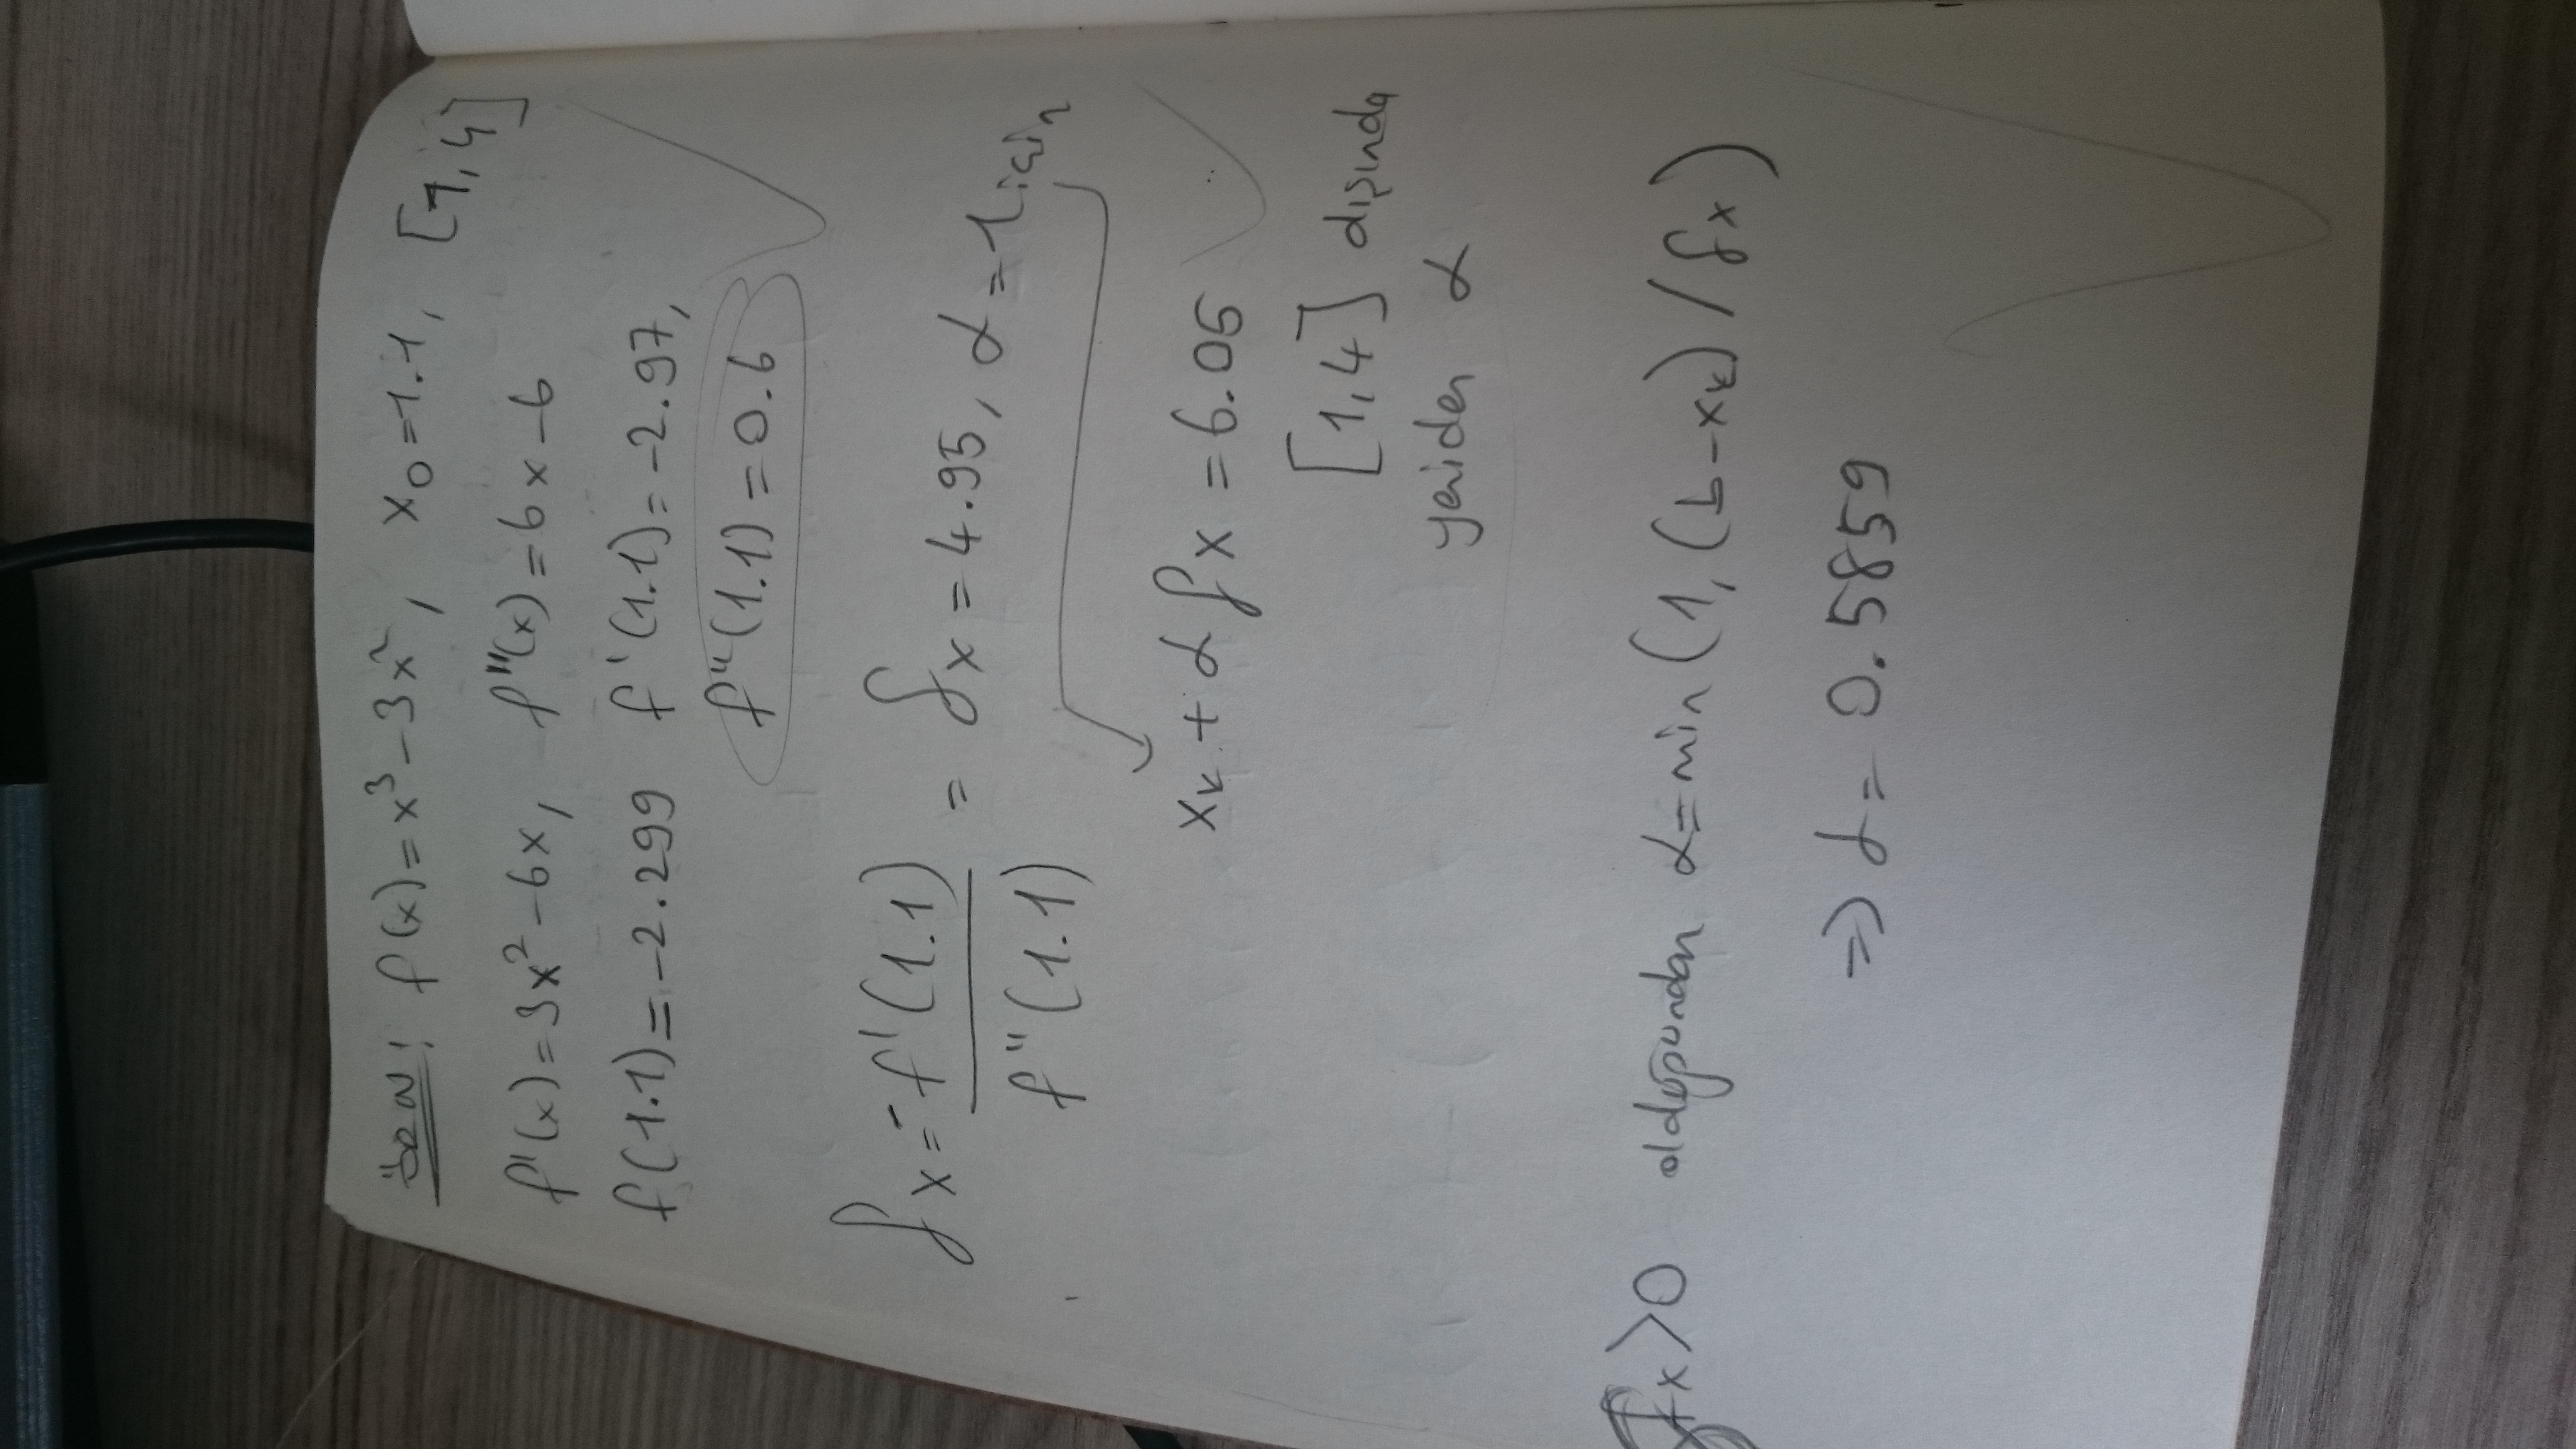 ÖRN: f(x)=x³-3x², x₀=1.1, [1,4]
f'(x)=3x²-6x, f''(x)=6x-6
f(1.1)=-2.299 f'(1.1)=-2.97,
f''(1.1)=0.6
δx=-f'(1.1)/f''(1.1) = δx=4.95, α=1 için
xₖ+αδx=6.05
[1,4] dışında
yeniden α
δx>0 olduğundan α=min(1,(b-xₖ)/δx)
⇒α=0.5859